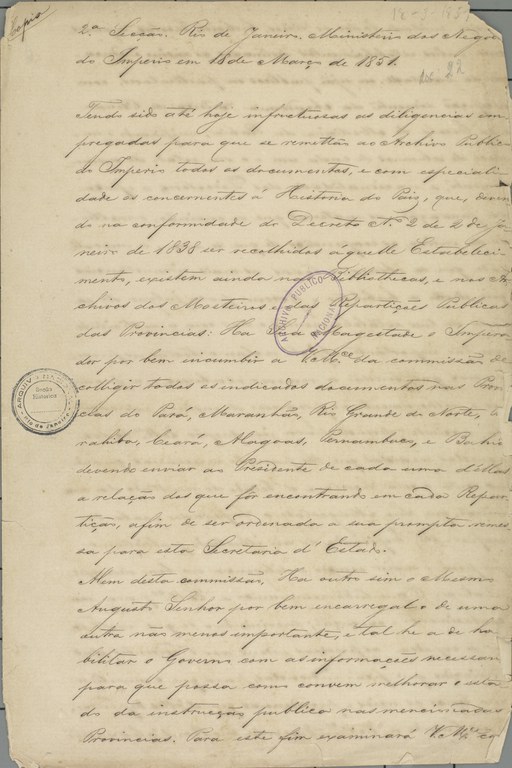 Copia
18-3-1851
2ª Secção. Rio de Janeiro. Ministerio dos Nego
do Imperio em 18 de Março de 1851.
Tendo sido até hoje infructuosas as diligencias em
pregadas para que se remettão ao Archivo Publico
do Imperio todos os documentos, e com especiali
dade os concernentes á Historia do Paiz, que, deven
do na conformidade do Decreto Nº 2 de 2 de Ja
neiro de 1838 ser recolhidos áquelle Estabeleci
mento, existem ainda nas Bibliothecas, e nos Ar
chivos dos Mosteiros e das Repartições Publicas
das Provincias: Ha Sua Magestade o Impera
dor por bem incumbir a VMce da commissão de
colligir todos os indicados documentos nas Provin
cias do Pará, Maranhão, Rio Grande do Norte, Pa
rahiba, Ceará, Alagoas, Pernambuco, e Bahia
devendo enviar ao Presidente de cada uma d'ellas
a relação dos que fôr encontrando em cada Repar
tição, afim de ser ordenada a sua prompta remes
sa para esta Secretaria d'Estado.
Alem desta commissão, Ha outro sim o Mesmo
Augusto Senhor por bem encarregal-o de uma
outra não menos importante, e tal he a de ha
bilitar o Governo com as informações necessari
para que possa como convem melhorar o esta
do da instrucção publica nas mencionadas
Provincias. Para este fim examinará VMce
ARCHIVO PUBLICO
NACIONAL
ARQUIV
Secção
Historica
Rio de Janeiro